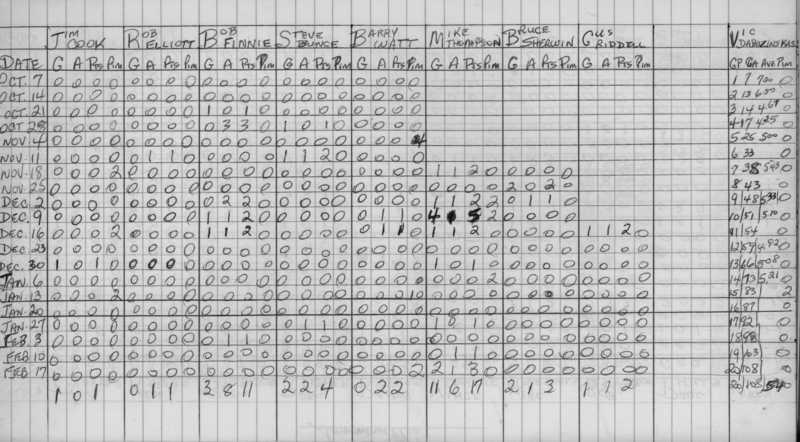 JIM ROB BOB STEVE BARRY MIKE BRUCE GUS VIC
COOK ELLIOTT FINNIE BUNCE WATT THOMPSON SHERWIN RIDDELL
DATE G A Pts Pim G A Pts Pim G A Pts Pim G A Pts Pim G A Pts Pim G A Pts Pim G A Pts Pim G A Pts Pim GP GA AVE Pim
OCT. 7 0 0 0 0 0 0 0 0 0 0 0 0 0 0 0 0 0 0 0 0 1 7 7.00 0
OCT. 14 0 0 0 0 0 0 0 0 0 0 0 0 0 0 0 0 0 0 0 0 2 13 6.50 0
OCT. 21 0 0 0 0 0 0 0 0 1 0 1 0 0 0 0 0 0 0 0 0 3 14 4.67 0
OCT 28 0 0 0 0 0 0 0 0 0 3 3 0 1 0 1 0 0 0 0 0 4 17 4.25 0
NOV 4 0 0 0 0 0 0 0 0 0 0 0 0 0 0 0 0 0 0 0 4 5 25 5.00 0
NOV. 11 0 0 0 0 0 1 1 0 0 0 0 0 1 1 2 0 0 0 0 0 6 33 0
NOV. 18 0 0 0 2 0 0 0 0 0 0 0 0 0 0 0 0 0 0 0 0 1 1 2 0 0 0 0 0 7 38 5.43 0
NOV. 25 0 0 0 0 0 0 0 0 0 0 0 0 0 0 0 0 0 0 0 0 0 0 0 0 2 0 2 0 8 43 0
DEC. 2 0 0 0 0 0 0 0 0 0 2 2 0 0 0 0 0 0 0 0 0 1 1 2 2 0 1 1 0 9 48 5.33 0
DEC. 9 0 0 0 0 0 0 0 0 1 1 2 0 0 0 0 0 0 1 1 0 4 5 2 0 0 0 0 10 51 5.10 0
DEC. 16 0 0 0 2 0 0 0 0 1 1 2 0 0 0 0 0 0 1 1 0 1 1 2 0 0 0 0 1 1 2 0 11 54 0
DEC. 23 0 0 0 0 0 0 0 0 0 0 0 0 0 0 0 0 0 0 0 0 0 0 0 0 0 0 0 0 0 0 0 0 12 59 4.92 0
DEC. 30 1 0 1 0 0 0 0 0 0 0 0 0 0 0 0 0 0 0 0 0 1 0 1 0 0 0 0 0 0 0 0 0 13 66 5.08 0
JAN. 6 0 0 0 0 0 0 0 0 0 0 0 0 0 0 0 0 0 0 0 0 0 0 0 0 2 0 0 0 0 14 73 5.21 0
JAN. 13 0 0 0 2 0 0 0 0 0 0 0 0 0 0 0 0 0 0 0 0 0 0 0 0 0 0 0 0 0 0 0 15 83 2
JAN. 20 0 0 0 0 0 0 0 0 0 0 0 0 0 0 0 0 0 0 0 0 0 0 0 0 0 0 0 0 0 0 0 0 16 87 0
JAN. 27 0 0 0 0 0 0 0 0 0 0 0 0 0 1 1 0 0 0 0 0 1 0 1 0 0 0 0 0 0 0 0 0 17 92 0
FEB. 3 0 0 0 0 0 0 0 0 0 1 1 0 0 0 0 0 0 0 0 0 0 0 0 0 0 0 0 0 0 0 0 0 18 98 0
FEB 10 0 0 0 0 0 0 0 0 0 0 0 0 0 0 0 0 0 0 0 0 0 1 1 0 0 0 0 0 0 0 0 0 19 103 0
FEB 17 0 0 0 0 0 0 0 0 0 0 0 0 0 0 0 0 0 0 0 2 2 1 3 0 0 0 0 0 0 0 0 0 20 108 0
1 0 1 0 1 1 3 8 11 2 2 4 0 2 2 11 6 17 2 1 3 1 1 2 20 108 5.40 0